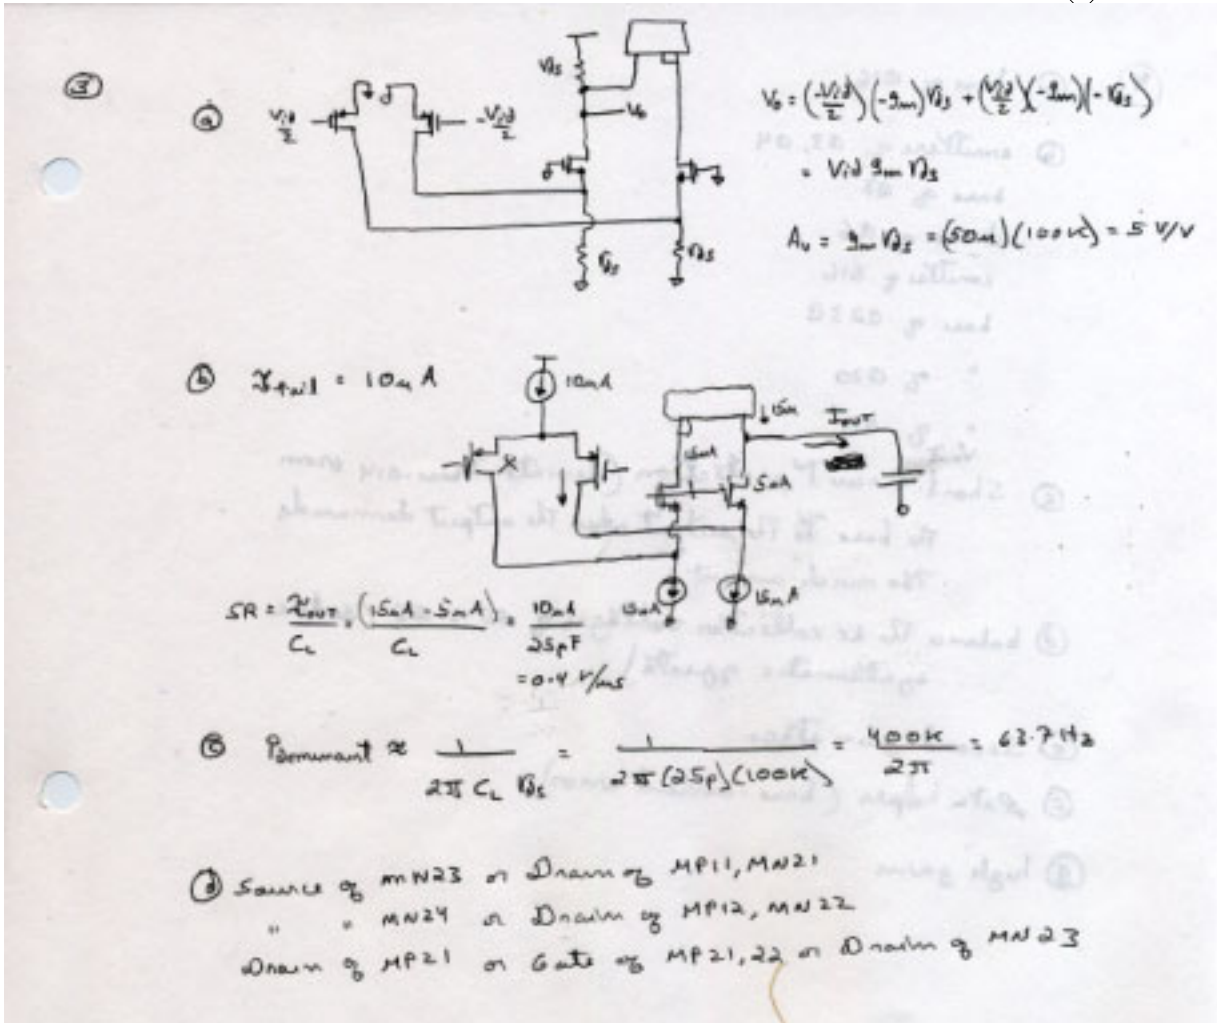 ③
ⓐ
Vid/2
-Vid/2
rds
Vo
rds
rds
Vo = (-Vid/2)(-gm) rds + (Vid/2)(-gm)(-rds)
= Vid gm rds
Av = gm rds = (50u)(100K) = 5 V/V
ⓑ Itail = 10u A
10uA
15u
IOUT
15uA
5uA
15uA
15uA
SR = IOUT/CL = (15uA - 5uA)/CL = 10uA/25pF
= 0.4 V/us
ⓒ Pdominant ≈ 1/(2π CL rds) = 1/(2π(25p)(100K)) = 400K/2π = 63.7 Hz
ⓓ Source of MN23 or Drain of MP11, MN21
" " MN24 or Drain of MP12, MN22
Drain of MP21 or Gate of MP21,22 or Drain of MN23